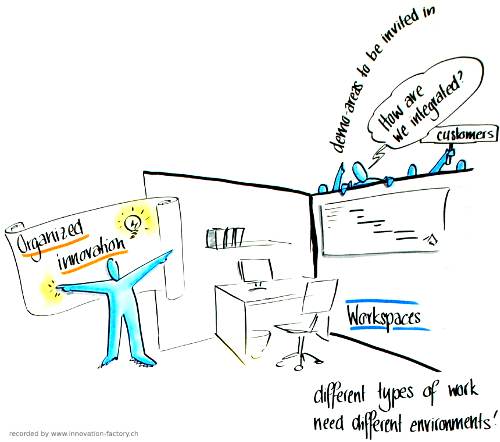 demo-areas to be invited in
How are
we integrated?
customers
Organized
innovation
Workspaces
different types of work
need different environments!
recorded by www.innovation-factory.ch